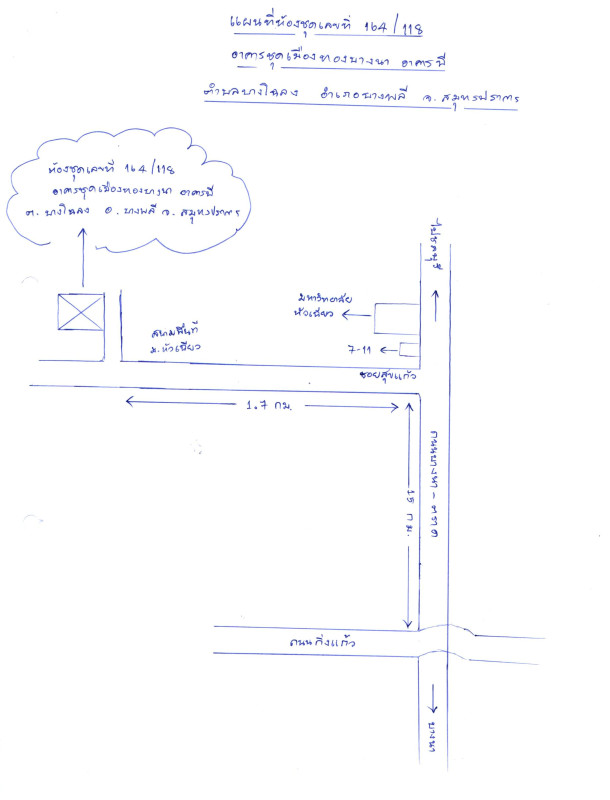 แผนที่ห้องชุดเลขที่ 164/118
อาคารชุดเมืองทองบางนา อาคารบี
ตำบลบางโฉลง อำเภอบางพลี จ.สมุทรปราการ
ห้องชุดเลขที่ 164/118
อาคารชุดเมืองทองบางนา อาคารบี
ต. บางโฉลง อ. บางพลี จ. สมุทรปราการ
ไปชลบุรี
มหาวิทยาลัย
หัวเฉียว
7-11
ม.หัวเฉียว
ซอยสุขแก้ว
1.7 กม.
ถนนบางนา - ตราด
15 กม.
ถนนกิ่งแก้ว
บางนา